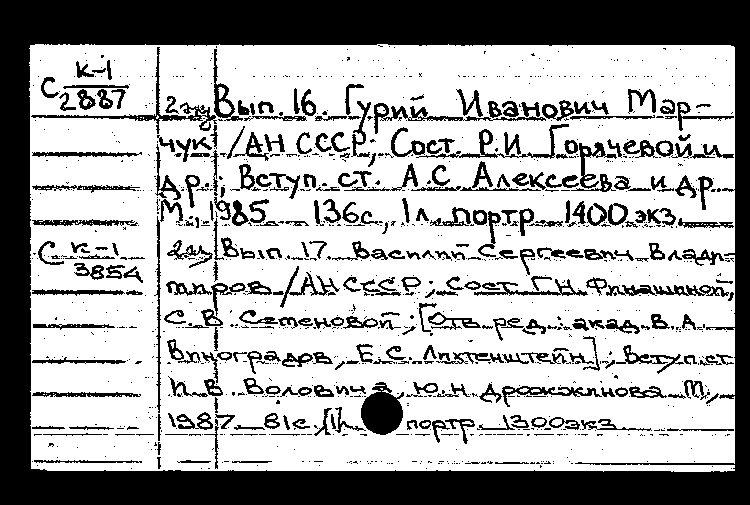 С К-1
2887
2 экз Вып. 16. Гурий Иванович Мар-
чук /АН СССР; Сост. Р.И Горячевой и
др.; Вступ. ст. А.С. Алексеева и др
М., 1985 136с, 1л. портр 1400 экз.
С К-1
3854
2 экз Вып. 17. Василий Сергеевич Влади-
миров /АН СССР; Сост Г.Н. Финашиной,
С. В Семеновой; [Отв ред.: акад. В. А.
Виноградов, Е.С. Лихтенштейн]; Вступ. ст
И. В. Воловича, Ю. Н Дрожжинова М.,
1987. 81с. [1]л портр. 1300экз